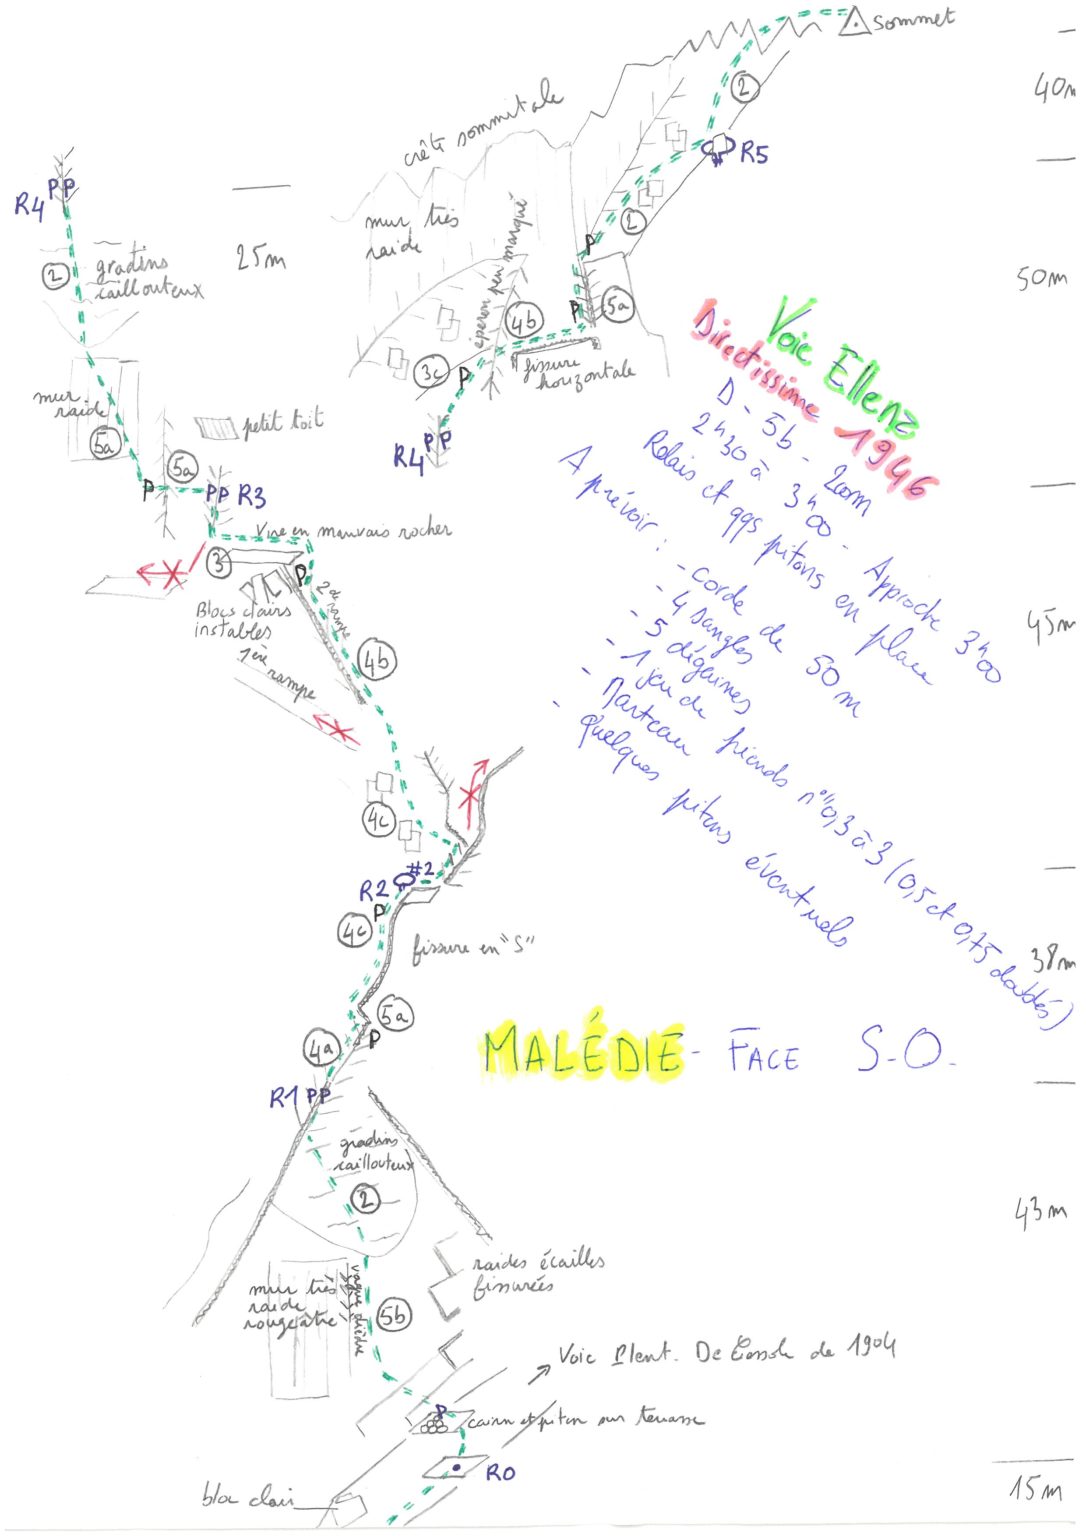 Sommet
40m
2
R5
crête sommitale
PP
R4
25m
mur très
raide
2
P
50m
2
gradins
caillouteux
éperon peu marqué
P
5a
4b
3c
P
fissure
horizontale
PP
R4
Voie Ellena
Directissime 1946
D - 5b - 200m
2h30 à 3h00 - Approche 3h00
Relais et qqs pitons en place
A prévoir : - corde de 50 m
- 4 sangles
- 5 dégaines
- 1 jeu de friends n° 0,3 à 3 (0,5 et 0,75 doublés)
- Marteau
- Quelques pitons éventuels
mur
raide
5a
petit toit
5a
P
PP R3
Vire en mauvais rocher
3
P
45m
Blocs clairs
instables
2de rampe
1ère
rampe
4b
4c
#2
R2
P
4c
fissure en "S"
38m
5a
P
4a
R1 PP
MALÉDIE - FACE S-O-
gradins
caillouteux
2
43m
raides écailles
fissurées
mur très
raide
rougeâtre
vague dièdre
5b
Voie de 1904
P
cairn et piton sur terrasse
R0
bloc clair
15m